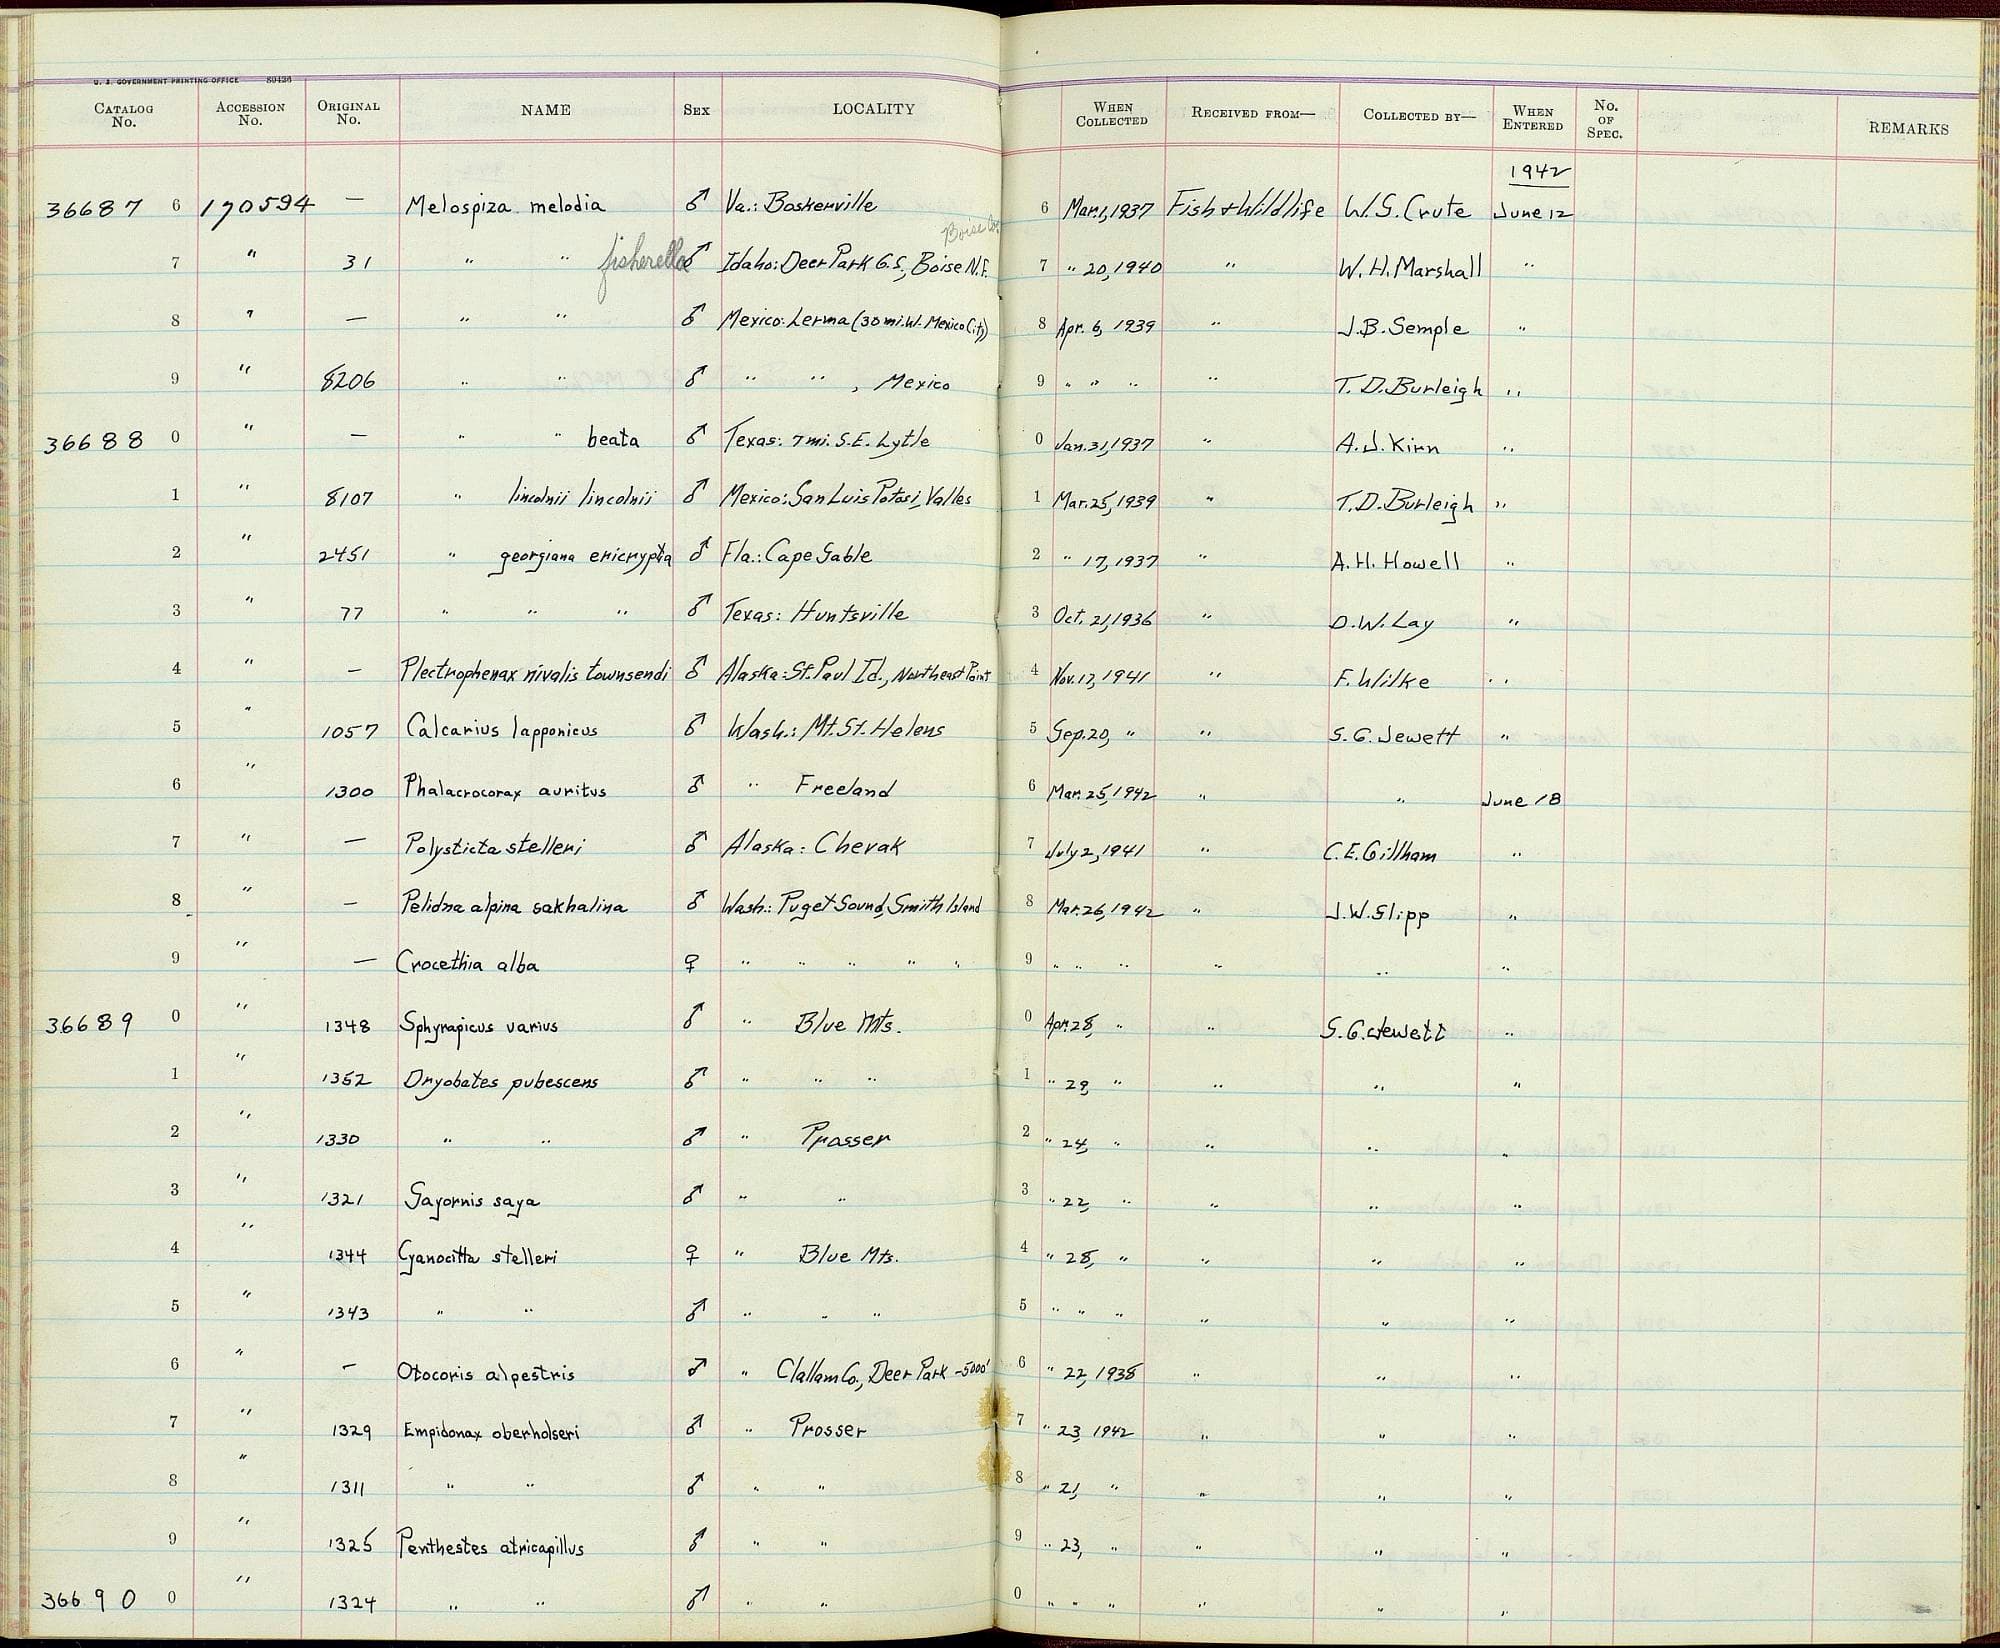 U. S. GOVERNMENT PRINTING OFFICE 89426
CATALOG No. ACCESSION No. ORIGINAL No. NAME SEX LOCALITY WHEN COLLECTED RECEIVED FROM— COLLECTED BY— WHEN ENTERED No. OF SPEC. REMARKS
1942
36687 6 170594 — Melospiza melodia ♂ Va.: Baskerville 6 Mar.1,1937 Fish & Wildlife W.S. Crute June 12
Boise Co.
7 " 31 " " fisherella ♂ Idaho: Deer Park G.S., Boise N.F. 7 " 20,1940 " W.H. Marshall "
8 " — " " ♂ Mexico: Lerma (30 mi. W. Mexico City) 8 Apr. 6, 1939 " J.B. Semple "
9 " 8206 " " ♂ " " , Mexico 9 " " " " T.D. Burleigh "
36688 0 " — " " beata ♂ Texas: 7 mi. S.E. Lytle 0 Jan.31,1937 " A.J. Kirn "
1 " 8107 " lincolnii lincolnii ♂ Mexico: San Luis Potosi, Valles 1 Mar.25,1939 " T.D. Burleigh "
2 " 2451 " georgiana ericrypta ♂ Fla.: Cape Sable 2 " 17,1937 " A.H. Howell "
3 " 77 " " " ♂ Texas: Huntsville 3 Oct. 21,1936 " D.W. Lay "
4 " — Plectrophenax nivalis townsendi ♂ Alaska: St. Paul Id., Northeast Point 4 Nov.17,1941 " F. Wilke "
5 " 1057 Calcarius lapponicus ♂ Wash.: Mt. St. Helens 5 Sep.20, " " S.G. Jewett "
6 " 1300 Phalacrocorax auritus ♂ " Freeland 6 Mar.25,1942 " " June 18
7 " — Polysticta stelleri ♂ Alaska: Chevak 7 July 2,1941 " C.E. Gillham "
8 " — Pelidna alpina sakhalina ♂ Wash.: Puget Sound, Smith Island 8 Mar.26,1942 " J.W. Slipp "
9 " — Crocethia alba ♀ " " " " " 9 " " " " " "
36689 0 " 1348 Sphyrapicus varius ♂ " Blue Mts. 0 Apr.28, " " S.G. Jewett "
1 " 1352 Dryobates pubescens ♂ " " " 1 " 29, " " " "
2 " 1330 " " ♂ " Prosser 2 " 24, " " " "
3 " 1321 Sayornis saya ♂ " " 3 " 22, " " " "
4 " 1344 Cyanocitta stelleri ♀ " Blue Mts. 4 " 28, " " " "
5 " 1343 " " ♂ " " " 5 " " " " " "
6 " — Otocoris alpestris ♂ " Clallam Co., Deer Park -5000' 6 " 22, 1938 " " "
7 " 1329 Empidonax oberholseri ♂ " Prosser 7 " 23, 1942 " " "
8 " 1311 " " ♂ " " 8 " 21, " " " "
9 " 1325 Penthestes atricapillus ♂ " " 9 " 23, " " " "
36690 0 " 1324 " " ♂ " " 0 " " " " " "